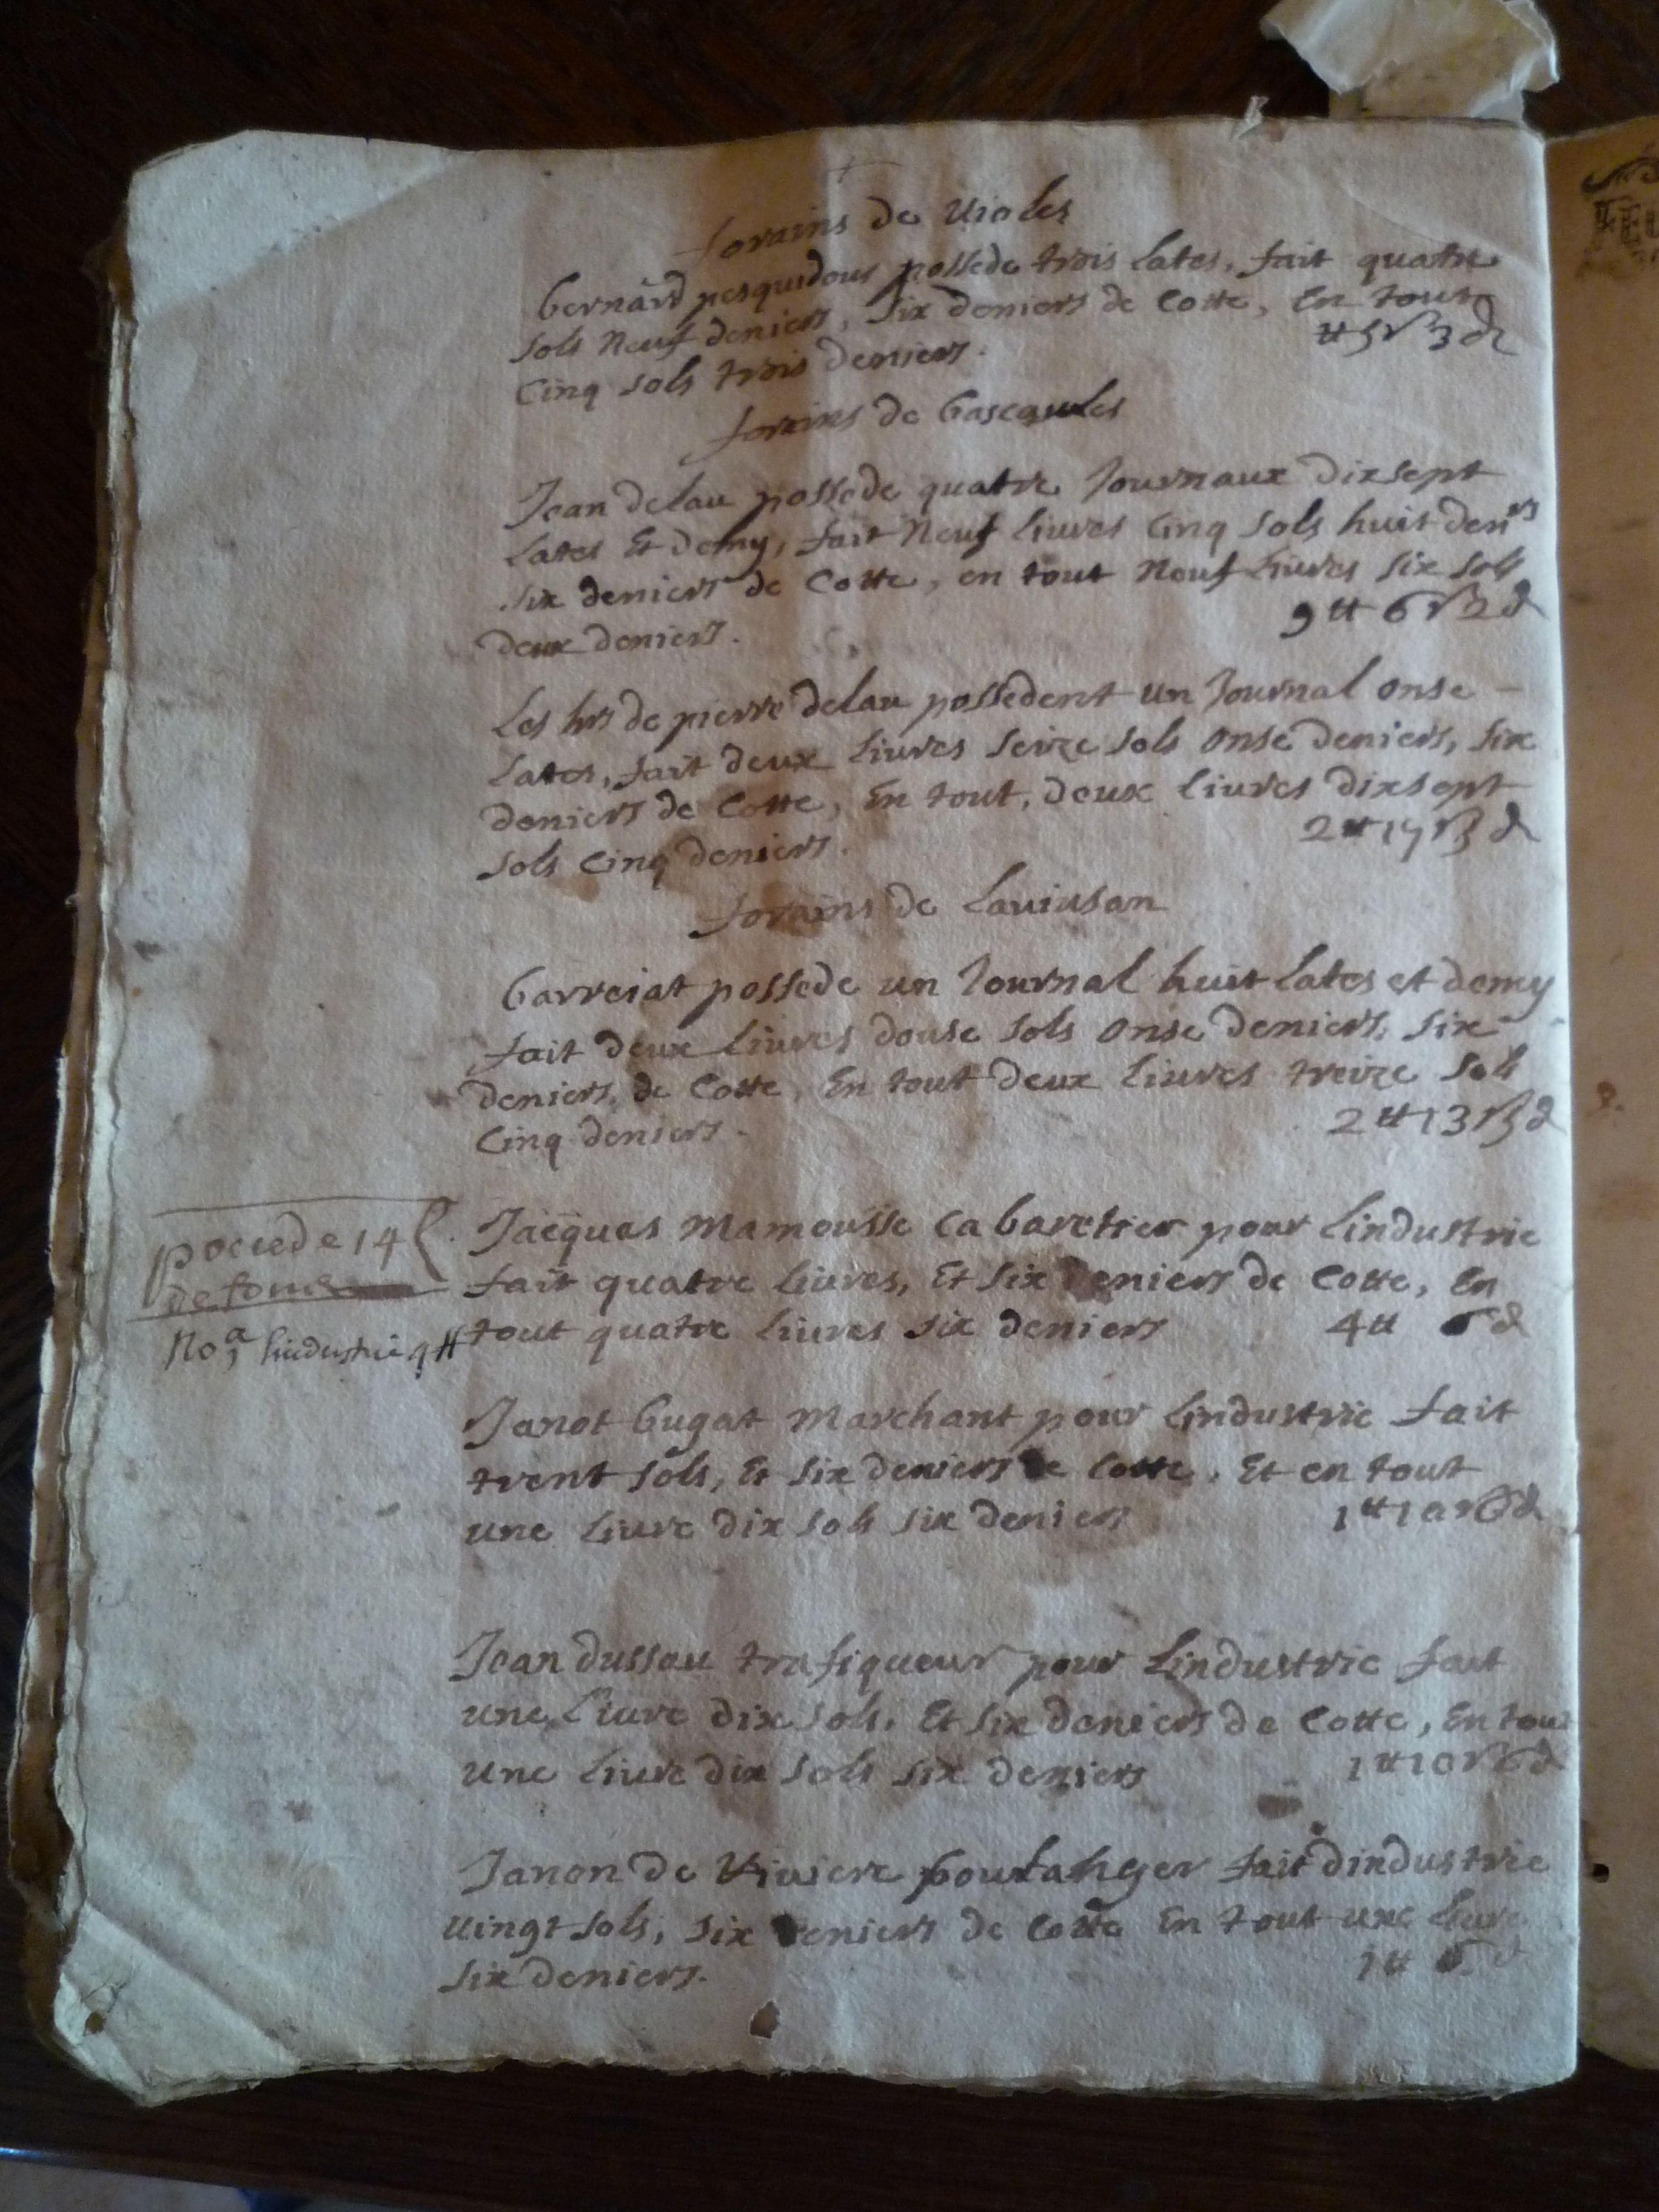 forains de Uioles
bernard pesquidous possede trois lates, fait quatre
sols Neuf deniers, six deniers de Cotte, En tout
Cinq sols trois deniers. ₶ 5 s 3 d
forains de bascaules
Jean delau possede quatre Journaux dixsept
lates Et demy, fait Neuf liures Cinq sols huit den^rs
six deniers de Cotte, en tout Neuf Liures six sols
deux deniers. 9 ₶ 6 s 2 d
Les hrs de pierre delau possedent un Journal onse -
lates, fait deux liures seize sols onse deniers, six
deniers de Cotte, En tout, deux liures dixsept
sols Cinq deniers. 2 ₶ 17 s 5 d
forains de Lauiusan
barreiat possede un Journal huit lates et demy
fait deux liures douse sols onse deniers, six
deniers, de Cotte, En tout deux liures treize sols
Cinq deniers. 2 ₶ 13 s 5 d
pocede 14 l.
de
No^a lindustrie 4 ₶
Jacques Mamousse Cabaretier pour Lindustrie
fait quatre liures, Et six deniers de Cotte, En
tout quatre liures six deniers 4 ₶ 6 d
Janot bugat Marchant pour Lindustrie fait
trent sols, Et six deniers de Cotte, Et en tout
une Liure dix sols six deniers 1 ₶ 10 s 6 d
Jean dussau trafiqueur pour Lindustrie fait
une Liure dix sols, Et six deniers de Cotte, En tout
une Liure dix sols six deniers 1 ₶ 10 s 6 d
Janon de Riuiere boulanger fait dindustrie
uingt sols, six deniers de Cotte En tout une liure
six deniers. 1 ₶ 6 d